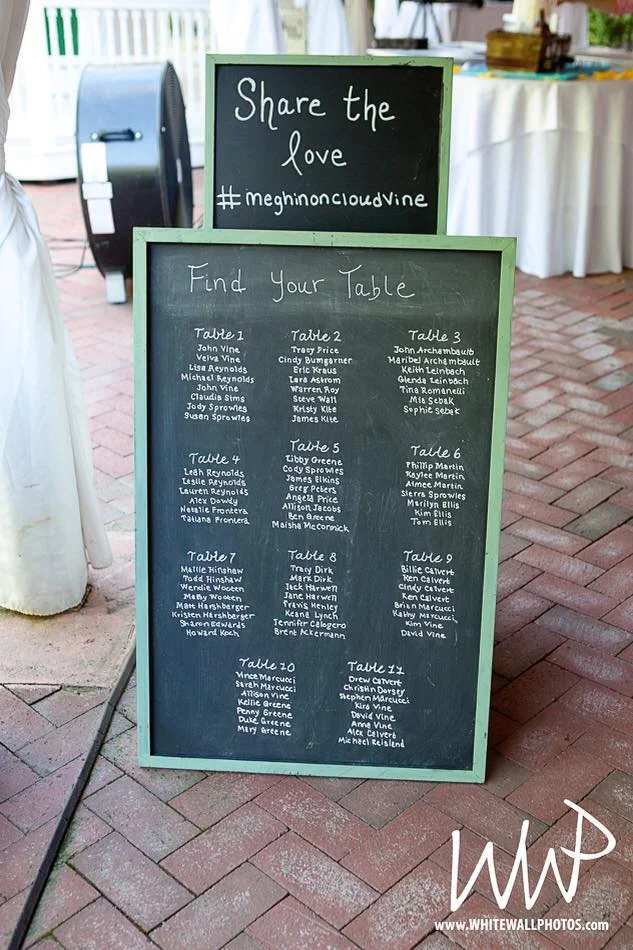 Share the
love
#meghinoncloudvine
Find Your Table
Table 1
John Vine
Velva Vine
Lisa Reynolds
Michael Reynolds
John Vine
Claudia Sims
Jody Sprowles
Susan Sprowles
Table 2
Tracy Price
Cindy Bumgarner
Eric Kraus
Lara Astrom
Warren Roy
Steve Wall
Kristy Kite
James Kite
Table 3
John Archambault
Maribel Archambault
Keith Leinbach
Glenda Leinbach
Tina Romanelli
Mia Sebak
Sophie Sebak
Table 4
Leah Reynolds
Leslie Reynolds
Lauren Reynolds
Alex Dowdy
Natalie Frontera
Tatiana Frontera
Table 5
Libby Greene
Cody Sprowles
James Elkins
Greg Peters
Angela Price
Allison Jacobs
Ben Greene
Maisha McCormick
Table 6
Phillip Martin
Kaylee Martin
Aimee Martin
Sierra Sprowles
Marilyn Ellis
Kim Ellis
Tom Ellis
Table 7
Mallie Hinshaw
Todd Hinshaw
Wendie Wooten
Matty Wooten
Matt Harshbarger
Kristen Harshbarger
Sharon Edwards
Howard Koch
Table 8
Tracy Dirk
Mark Dirk
Jack Harwell
Jane Harwell
Travis Henley
Keana Lynch
Jennifer Calogero
Brent Ackermann
Table 9
Billie Calvert
Ken Calvert
Cindy Calvert
Ken Calvert
Brian Marcucci
Kathy Marcucci
Kim Vine
David Vine
Table 10
Vince Marcucci
Sarah Marcucci
Allison Vine
Kellie Greene
Penny Greene
Duke Greene
Mary Greene
Table 11
Drew Calvert
Christin Dorsey
Stephen Marcucci
Kira Vine
David Vine
Anna Vine
Alex Calvert
Michael Reisland
WWP
WWW.WHITEWALLPHOTOS.COM